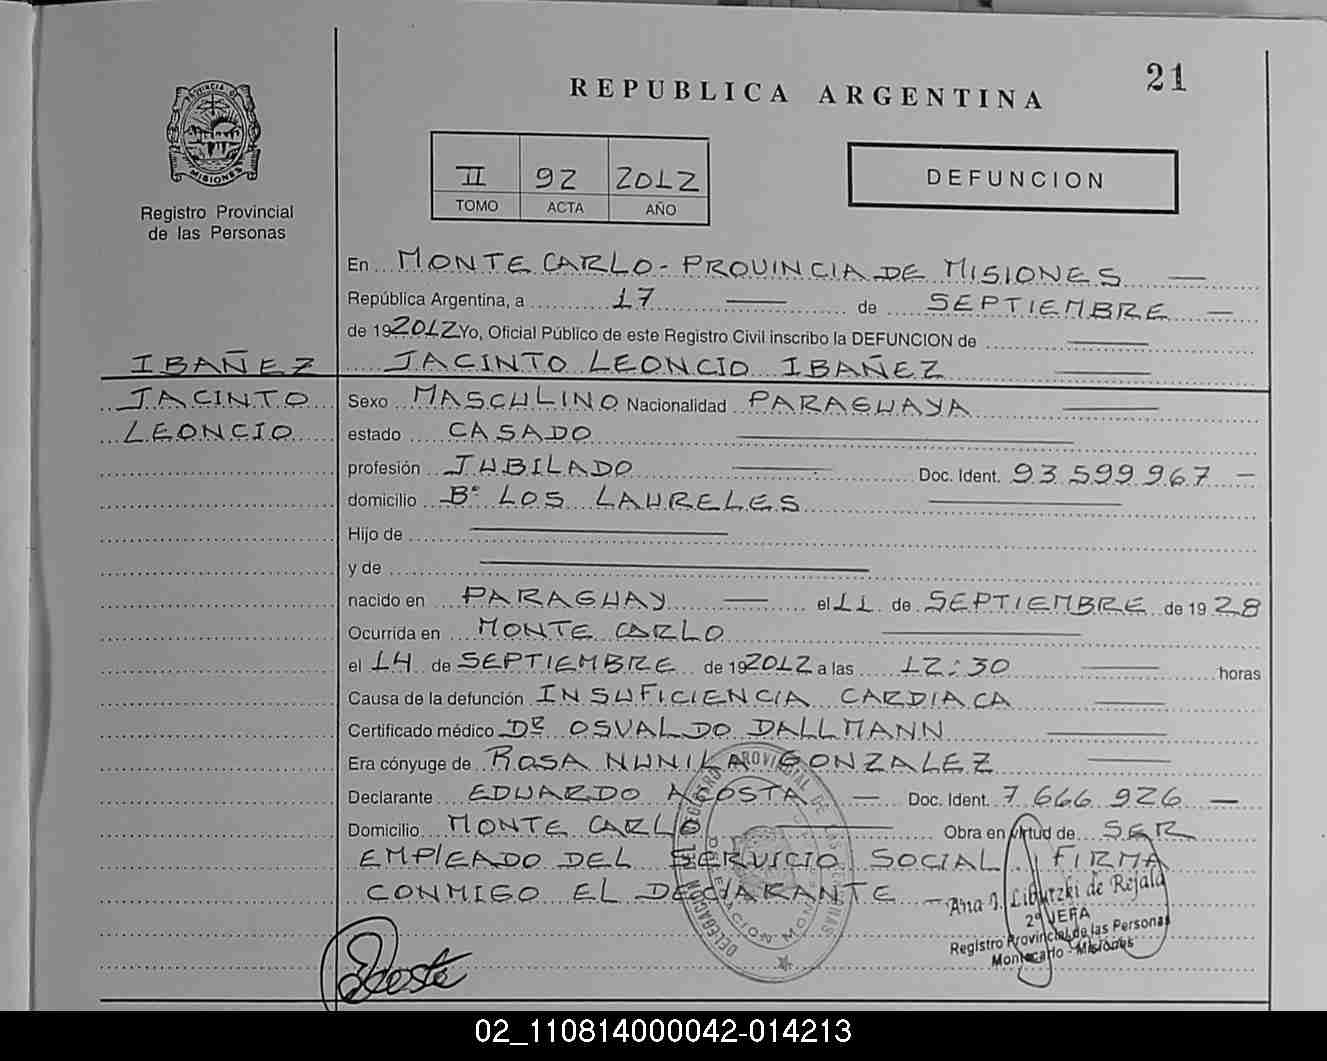 21
REPUBLICA ARGENTINA
PROVINCIA DE
MISIONES
Registro Provincial
de las Personas
II 92 2012
TOMO ACTA AÑO
DEFUNCION
En MONTECARLO - PROVINCIA DE MISIONES —
República Argentina, a 17 — de SEPTIEMBRE —
de 192012 Yo, Oficial Público de este Registro Civil inscribo la DEFUNCION de —
IBAÑEZ JACINTO LEONCIO IBAÑEZ —
JACINTO Sexo MASCULINO Nacionalidad PARAGUAYA —
LEONCIO estado CASADO —
profesión JUBILADO — Doc. Ident. 93.599.967 —
domicilio Bº LOS LAURELES —
Hijo de —
y de —
nacido en PARAGUAY — el 11 de SEPTIEMBRE de 1928
Ocurrida en MONTE CARLO —
el 14 de SEPTIEMBRE de 192012 a las 12:30 — horas
Causa de la defunción INSUFICIENCIA CARDIACA —
Certificado médico DR OSVALDO DALLMANN —
Era cónyuge de ROSA NUNILA GONZALEZ —
Declarante EDUARDO ACOSTA — Doc. Ident. 7.666.926 —
Domicilio MONTE CARLO — Obra en virtud de SER
EMPLEADO DEL SERVICIO SOCIAL FIRMA
CONMIGO EL DECLARANTE —
Ana I. Libutzki de Rejala
2º JEFA
Registro Provincial de las Personas
Montecarlo - Misiones
Acosta
02_110814000042-014213